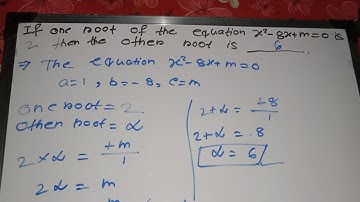 If one root of the equation x²-8x+m=0 is
2 then the other root is 6.
⇒ The equation x²-8x+m=0
a=1, b=-8, c=m
one root = 2
other root = α
2×α = +m/1
2α = m
2+α = +8/1
2+α = 8
α = 6